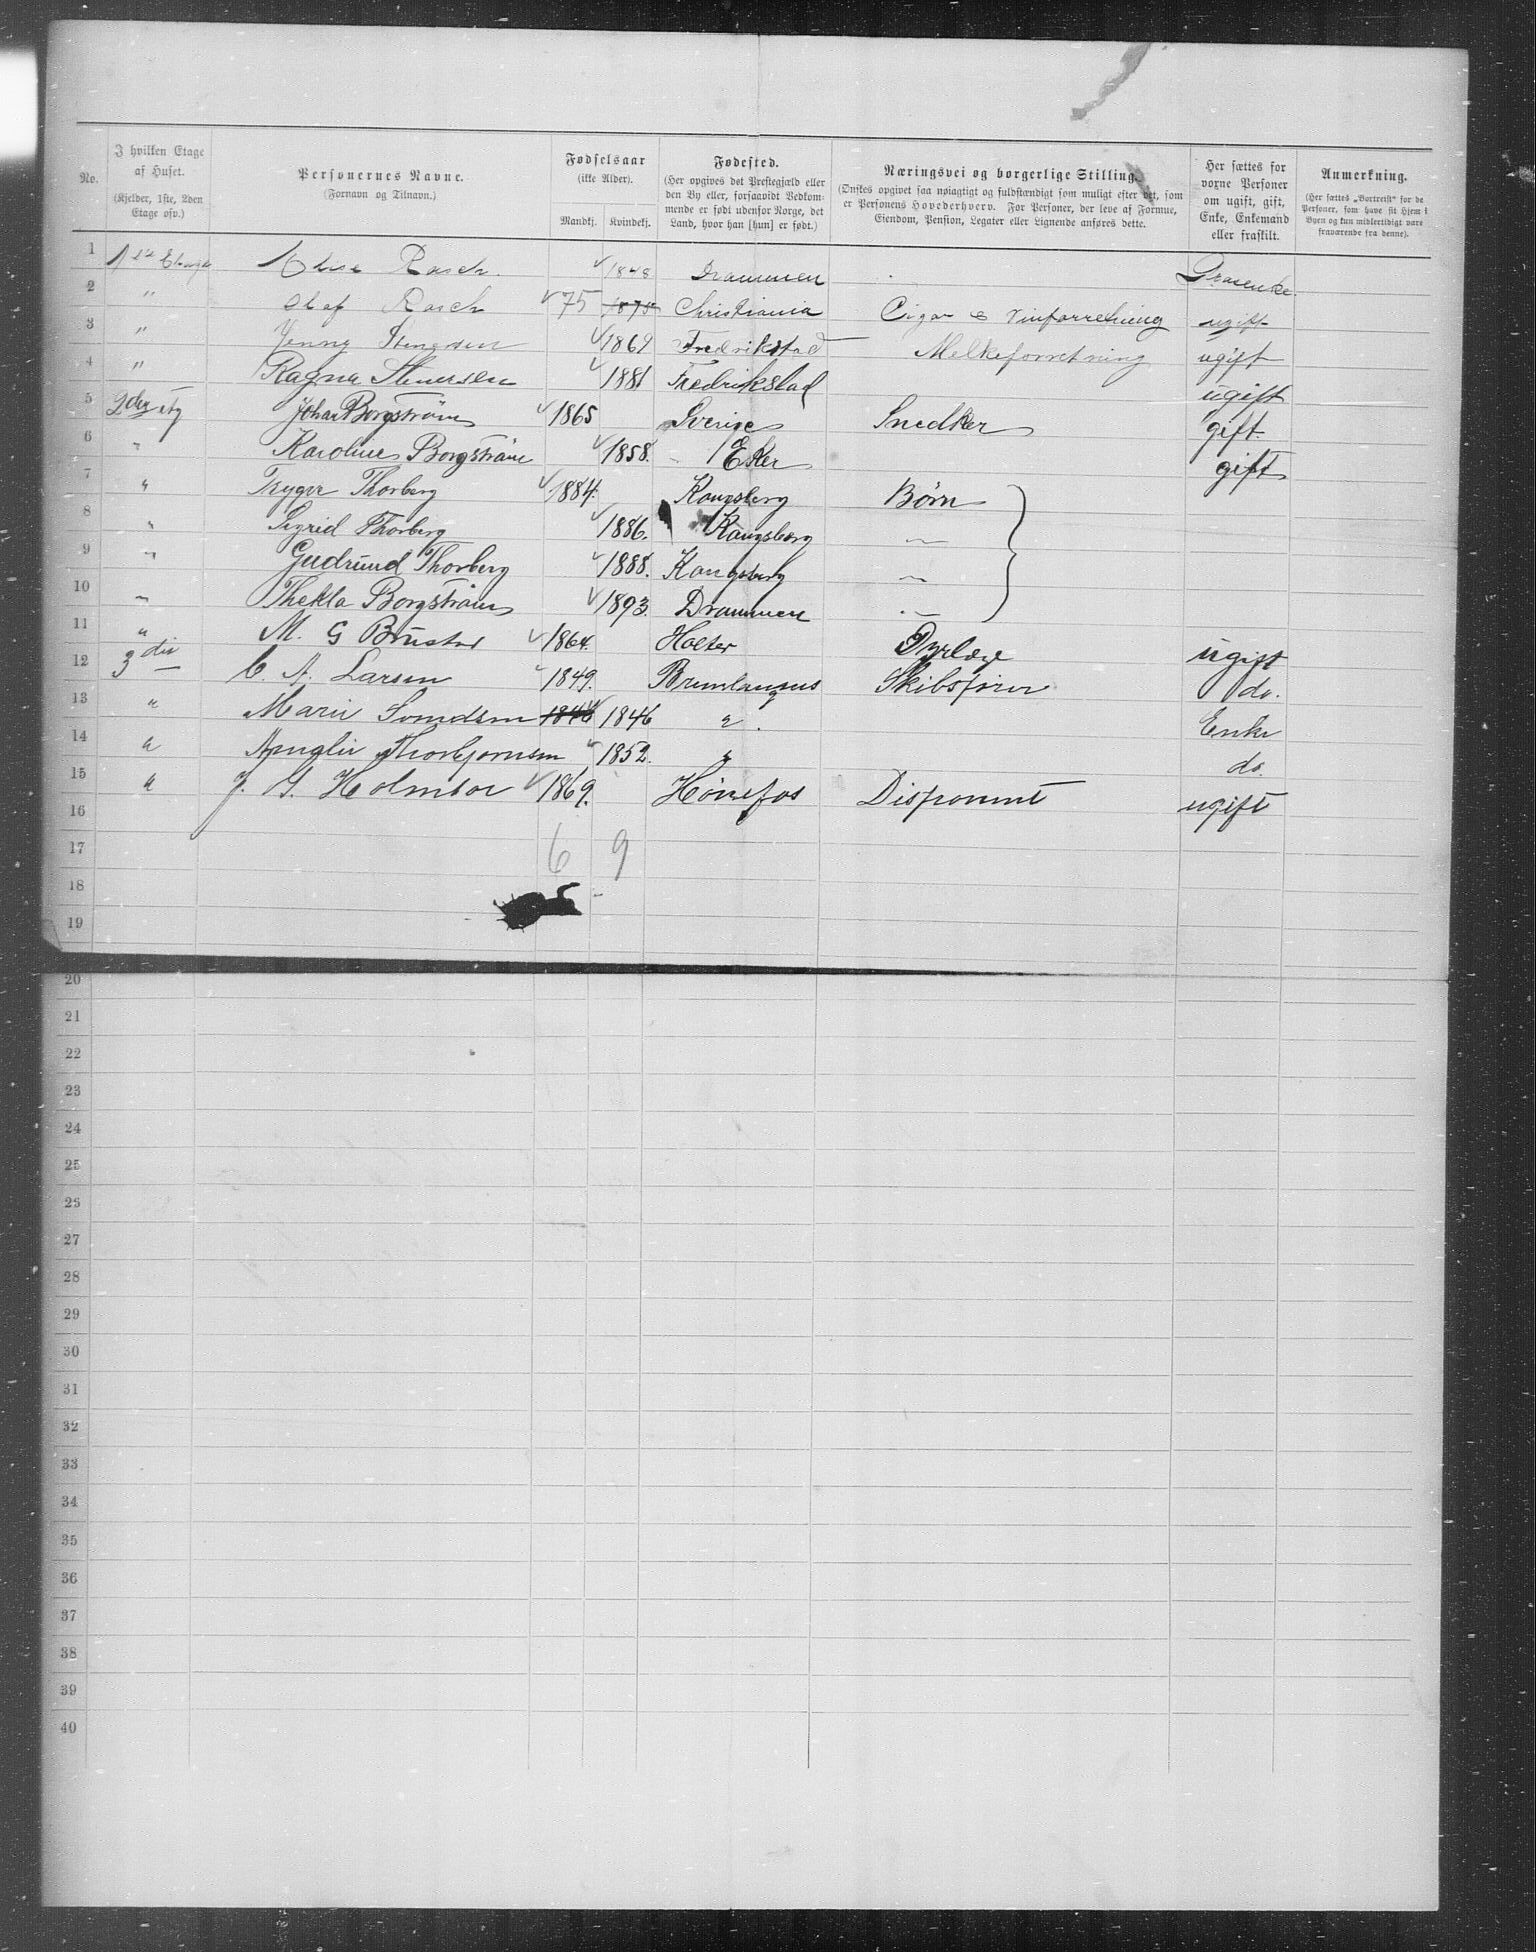 No. | I hvilken Etage af Huset. (Kjelder, 1ste, 2den Etage osv.) | Personernes Navne. (Fornavn og Tilnavn.) | Fødselsaar (ikke Alder). Mandkj. | Kvindekj. | Fødested. (Her opgives det Prestegjæld eller den By eller, forsaavidt Vedkommende er født udenfor Norge, det Land, hvor han [hun] er født.) | Næringsvei og borgerlige Stilling. (Ønskes opgivet saa nøiagtigt og fuldstændigt som muligt efter det, som er Personens Hovederhverv. For Personer, der leve af Formue, Eiendom, Pension, Legater eller Lignende anføres dette.) | Her sættes for voxne Personer om ugift, gift, Enke, Enkemand eller fraskilt. | Anmerkning. (Her sættes „Bortreist“ for de Personer, som have sit Hjem i Byen og kun midlertidigt være fraværende fra denne).
1 | 1ste Etage | Elise Rasch. | 1848 | Drammen | Græsenke.
2 | " | Olaf Rasch | 75 1875 | Christiania | Cigar & Vinforretning | ugift
3 | " | Jenny | 1869 | Fredrikstad | Melkeforretning | ugift
4 | " | Ragna Stenersen | 1881 | Fredrikstad | ugift
5 | 2den Etg | Johan Borgström | 1865 | Sverige | Snedker | gift.
6 | " | Karoline Borgström | 1858. | Eker | gift
7 | " | Trygve Thorberg | 1884. | Kongsberg | Børn
8 | " | Sigrid Thorberg | 1886. | Kongsberg | "
9 | " | Gudrund Thorberg | 1888. | Kongsberg | "
10 | " | Thekla Borgström | 1893. | Drammen | "
11 | " | M. G Brustad | 1864. | Holter | Dyrlæge | ugift
12 | 3die | C. A. Larsen | 1849. | Brunlangnæs | Skibsfører | do.
13 | " | Marie | 1846 1846 | " | Enke
14 | " | Thorbjørnsen | 1852. | " | do.
15 | " | J. G. Holmboe | 1869. | Hønefos | Disponent | ugift
16
17 | 6 | 9
18
19
20
21
22
23
24
25
25
27
28
29
30
31
32
33
34
35
36
37
38
39
40